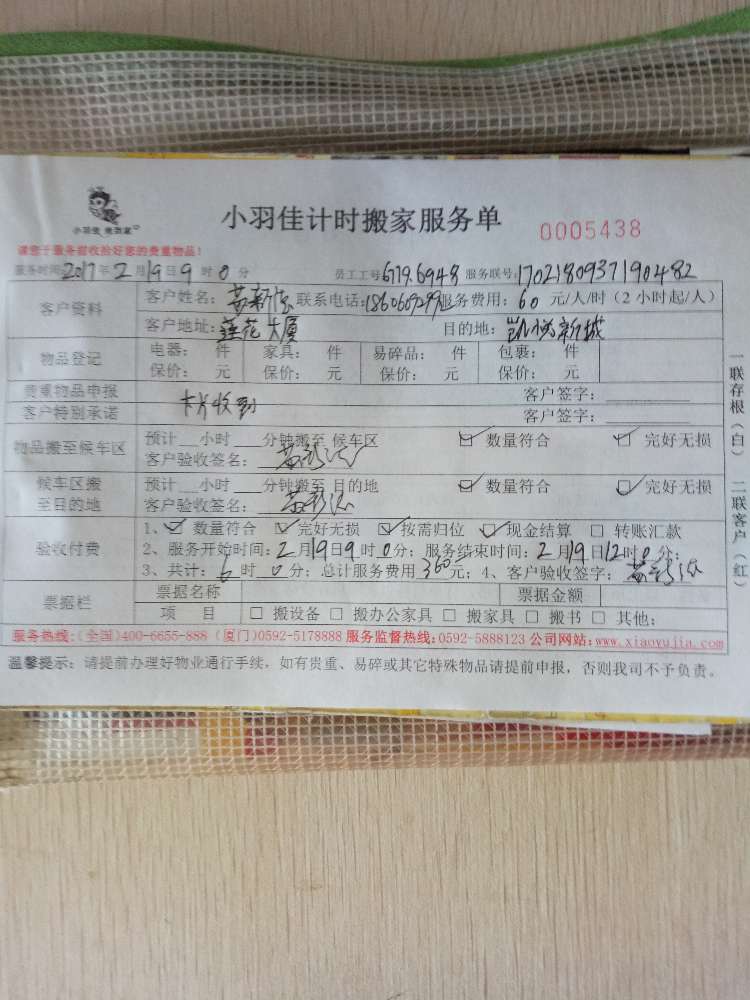 小羽佳 使到家
小羽佳计时搬家服务单
0005438
请您于服务前收拾好您的贵重物品!
服务时间:2017年2月19日9时0分 员工工号:679.6948 服务联号:170218093719 0482
客户资料
客户姓名: 联系电话: 服务费用:60元/人/时(2小时起/人)
客户地址:莲花大厦 目的地:凯悦新城
物品登记
电器: 件 家具: 件 易碎品: 件 包裹: 件
保价: 元 保价: 元 保价: 元 保价: 元
贵重物品申报 客户签字:
客户特别承诺 卡片收到 客户签字:
物品搬至候车区
预计 小时 分钟搬至 候车区 ☑ 数量符合 ☑ 完好无损
客户验收签名:
候车区搬至目的地
预计 小时 分钟搬至 目的地 ☑ 数量符合 ☑ 完好无损
客户验收签名:
验收付费
1、☑ 数量符合 ☑ 完好无损 ☑ 按需归位 ☑ 现金结算 ☐ 转账汇款
2、服务开始时间:2月19日9时0分;服务结束时间:2月19日12时0分;
3、共计:6时0分;总计服务费用360元;4、客户验收签字:
票据栏
票据名称 票据金额
项 目 ☐ 搬设备 ☐ 搬办公家具 ☐ 搬家具 ☐ 搬书 ☐ 其他:
服务热线:(全国)400-6655-888 (厦门)0592-5178888 服务监督热线:0592-5888123 公司网站:www.xiaoyujia.com
温馨提示:请提前办理好物业通行手续,如有贵重、易碎或其它特殊物品请提前申报,否则我司不予负责。
一联存根(白) 二联客户(红)